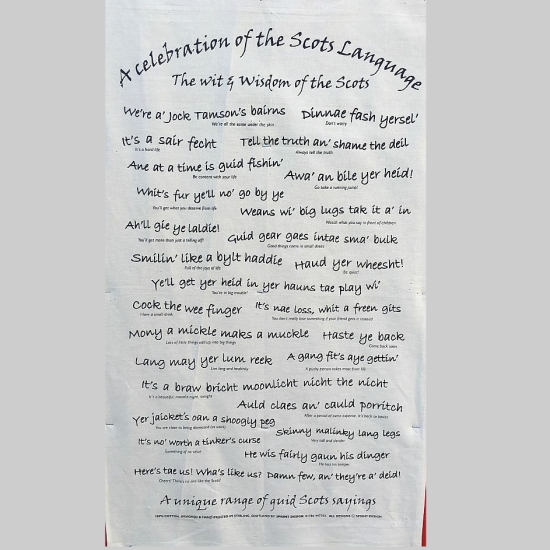 A celebration of the Scots Language
The wit & Wisdom of the Scots
We're a' Jock Tamson's bairns
We're all the same under the skin
Dinnae fash yersel'
Don't worry
It's a sair fecht
It's a hard life
Tell the truth an' shame the deil
Always tell the truth
Ane at a time is guid fishin'
Be content with your life
Awa' an bile yer heid!
Go take a running jump!
Whit's fur ye'll no' go by ye
You'll get what you deserve from life
Weans wi' big lugs take it a' in
Watch what you say in front of children
Ah'll gie ye laldie!
You'll get more than just a telling off!
Guid gear gaes intae sma' bulk
Good things come in small sizes
Smilin' like a bylt haddie
Full of the joys of life
Haud yer wheesht!
Be quiet!
Ye'll get yer heid in yer hauns tae play wi'
You're in big trouble!
Cock the wee finger
Have a small drink
It's nae loss, whit a freen gits
You don't really lose something if your friend gets it instead
Mony a mickle makes a muckle
Lots of little things add up into big things
Haste ye back
Come back soon
Lang may yer lum reek
Live long and healthily
A gang fit's aye gettin'
It's a braw bricht moonlicht nicht the nicht
It's a beautiful moonlit night, tonight
Auld claes an' cauld porritch
Yer jaicket's oan a shoogly peg
Skinny malinky lang legs
Tall and slender
It's no' worth a tinker's curse
Something of no value
He wis fairly gaun his dinger
He lost his temper
Here's tae us! Wha's like us? Damn few, an' they're a' deid!
Cheers! There's no one like the Scots!
A unique range of guid Scots sayings